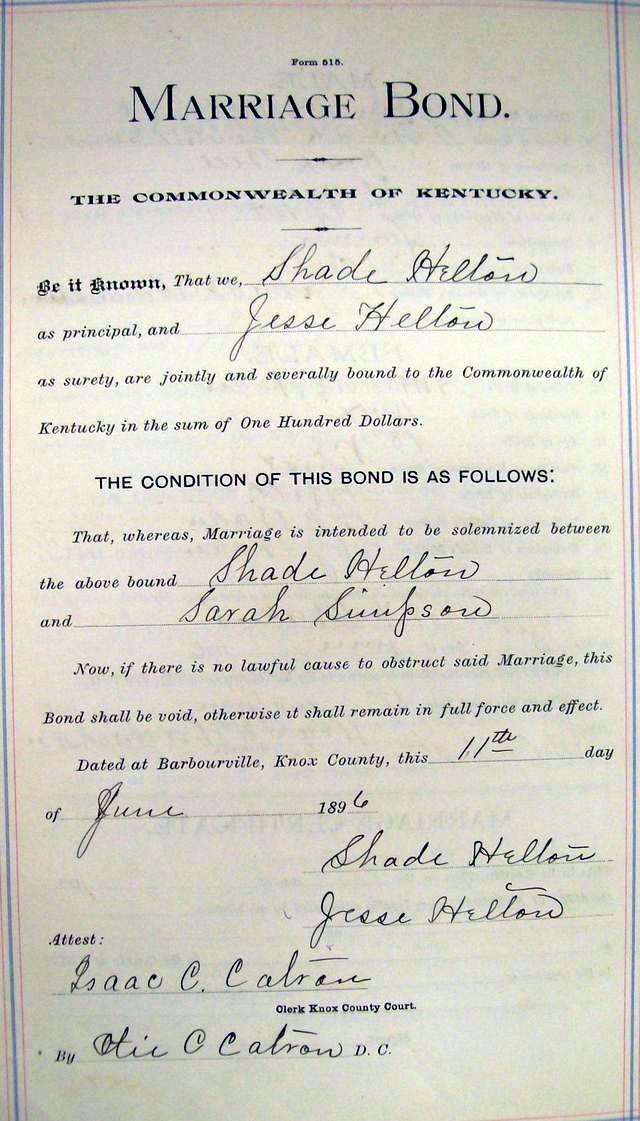 Form 515.
MARRIAGE BOND.
THE COMMONWEALTH OF KENTUCKY.
Be it Known, That we, Shade Helton
as principal, and Jesse Helton
as surety, are jointly and severally bound to the Commonwealth of
Kentucky in the sum of One Hundred Dollars.
THE CONDITION OF THIS BOND IS AS FOLLOWS:
That, whereas, Marriage is intended to be solemnized between
the above bound Shade Helton
and Sarah Simpson
Now, if there is no lawful cause to obstruct said Marriage, this
Bond shall be void, otherwise it shall remain in full force and effect.
Dated at Barbourville, Knox County, this 11th day
of June 1896
Shade Helton
Jesse Helton
Attest:
Isaac C. Catron
Clerk Knox County Court.
By Otie C Catron D. C.